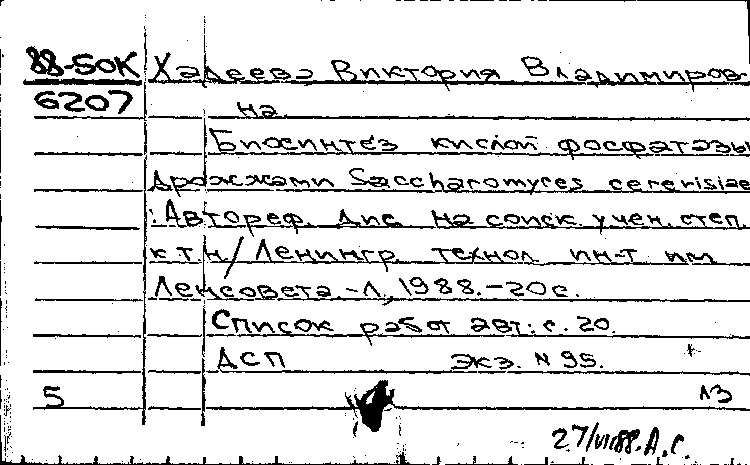 88-50К Хадеева Виктория Владимиров-
6207 на.
Биосинтез кислой фосфатазы
дрожжами Saccharomyces cerevisiae
: Автореф. дис. на соиск. учен. степ.
к.т.н/Ленингр. технол ин-т им
Ленсовета.-Л., 1988.-20с.
Список работ авт.: с. 20.
ДСП экз. N 95.
5 13
27/VI 88. А.С.